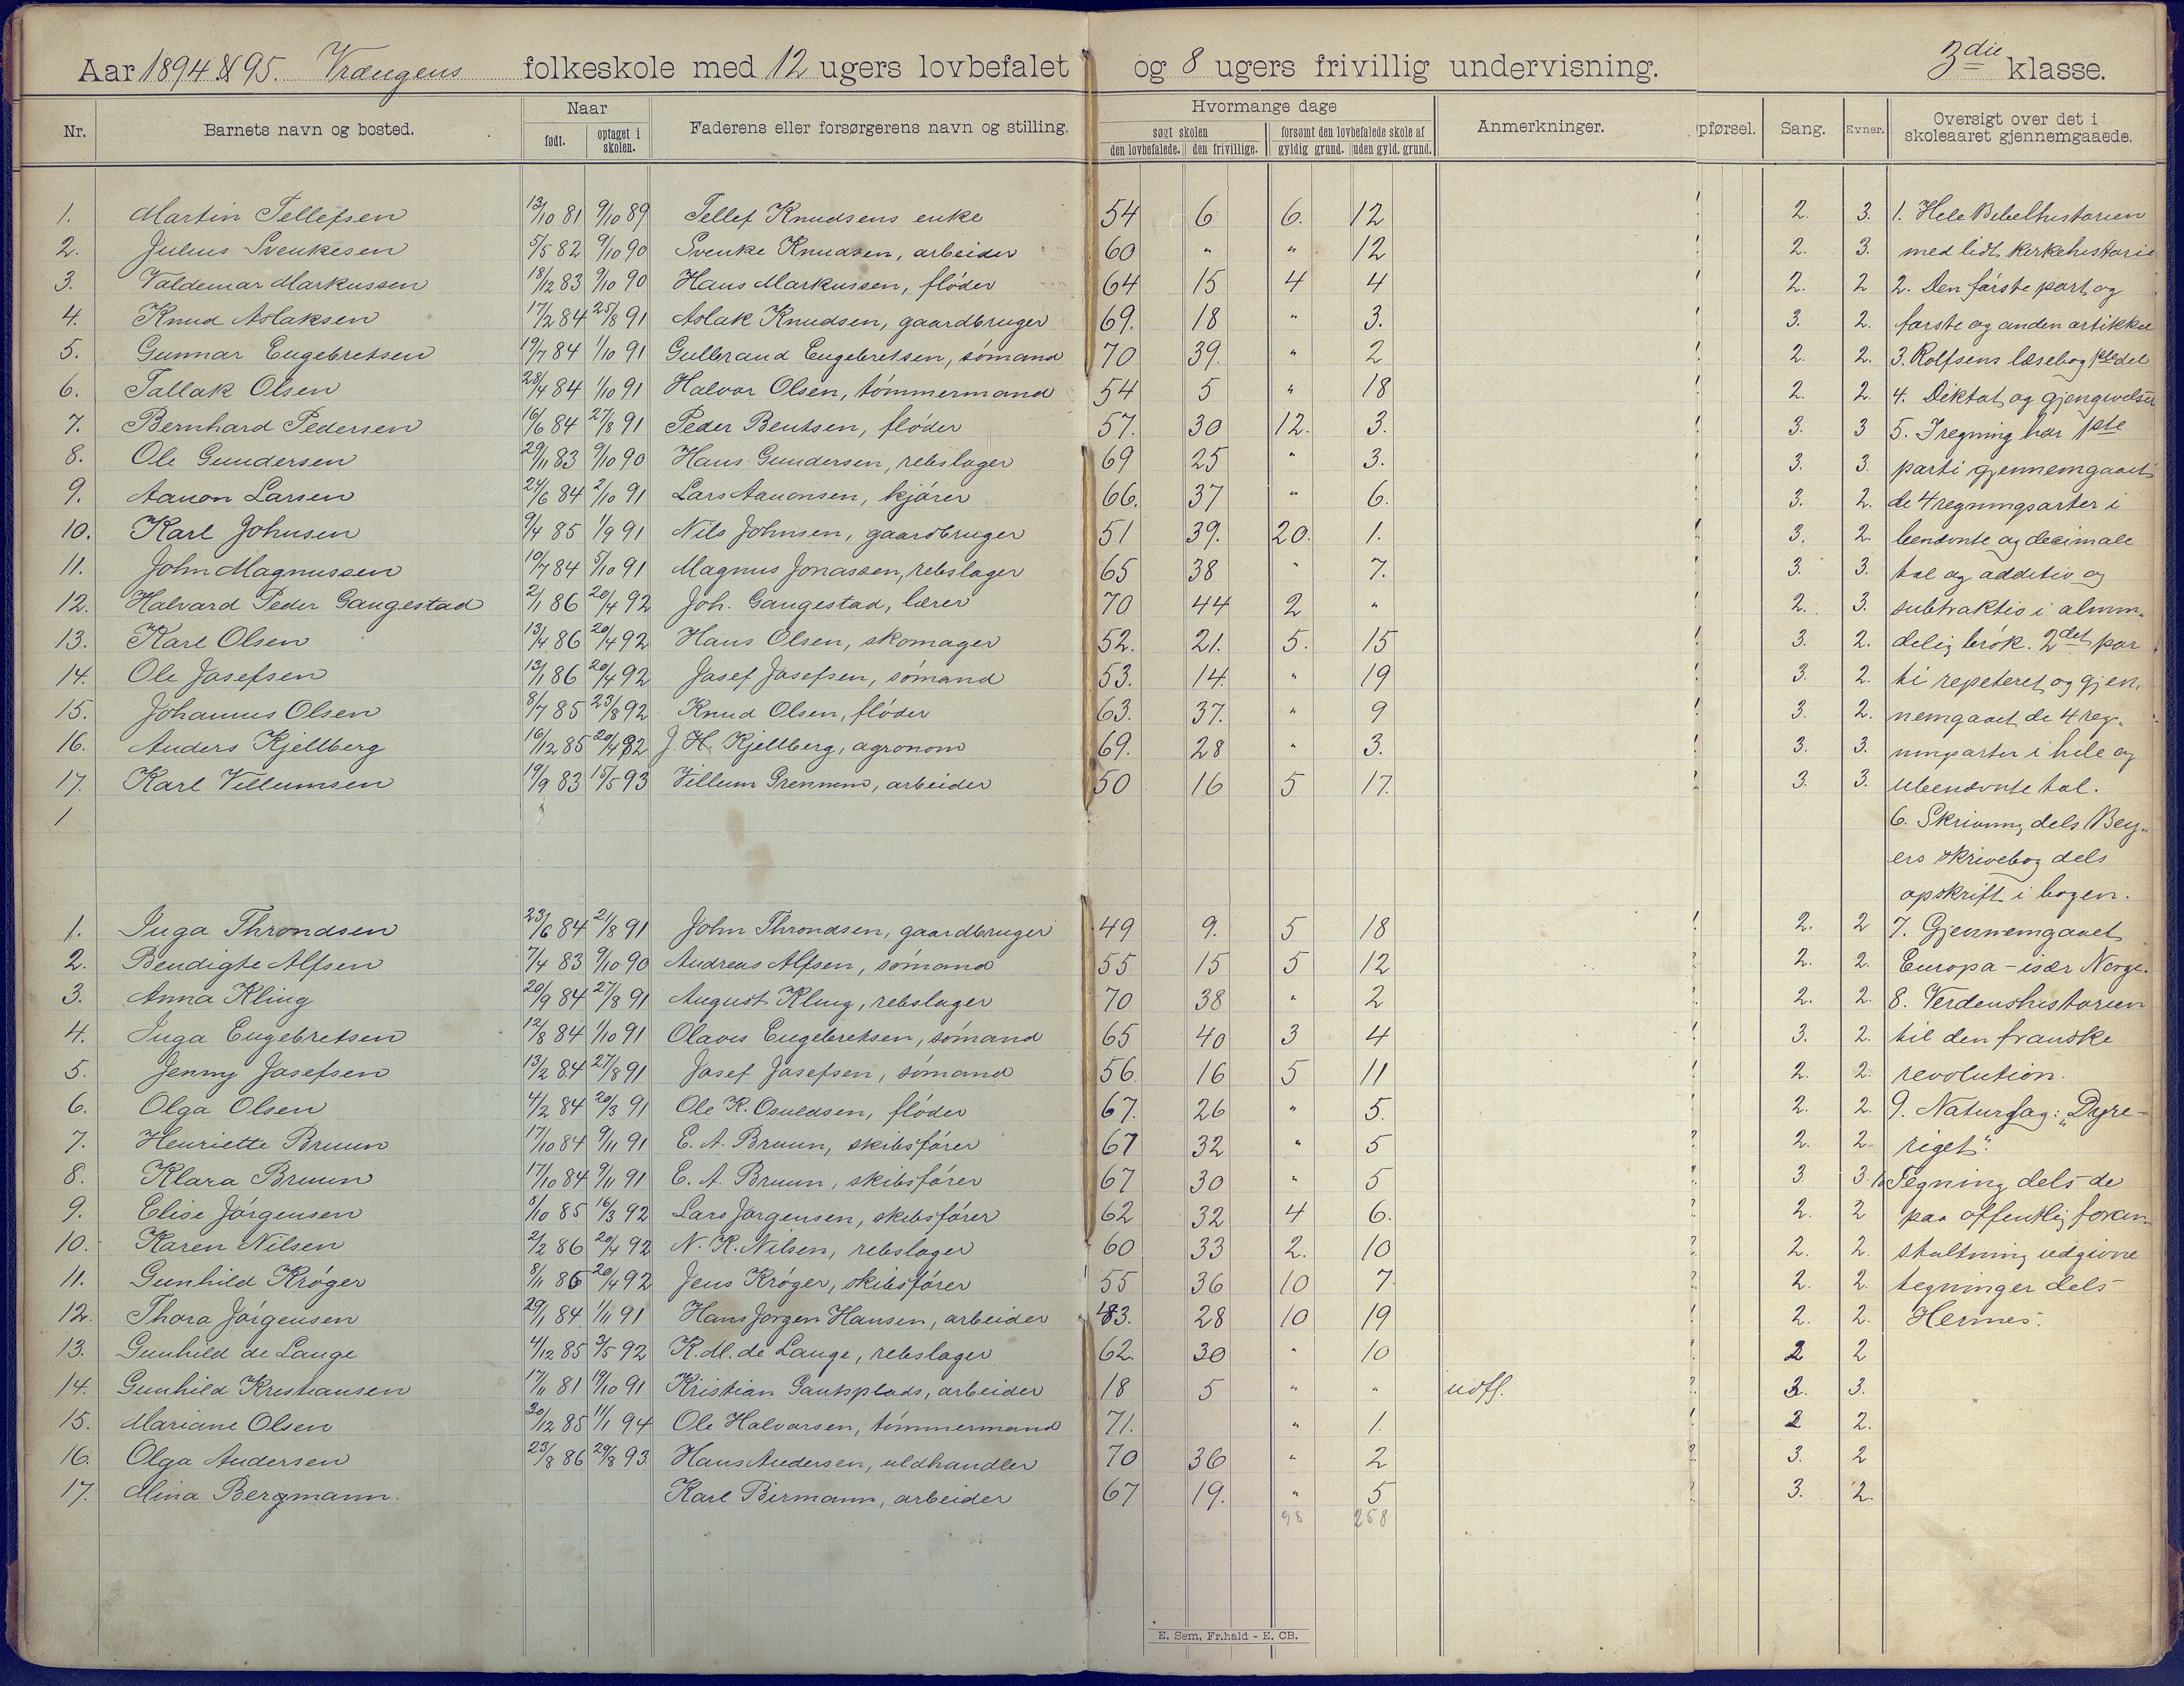 Aar 1894 & 95. Vrængens folkeskole med 12 ugers lovbefalet og 8 ugers frivillig undervisning. 3die klasse.
Nr. Barnets navn og bosted. Naar født. optaget i skolen. Faderens eller forsørgerens navn og stilling. Hvormange dage søgt skolen den lovbefalede. den frivillige. forsømt den lovbefalede skole af gyldig grund. uden gyld. grund. Anmerkninger. pførsel. Sang. Evner. Oversigt over det i skoleaaret gjennemgaaede.
1. Martin Tellefsen 13/10 81 9/10 89 Tellef Knudsens enke 54 6 6. 12 2. 3. 1. Hele Bibelhistorien
2. Julius Svenkesen 5/5 82 9/10 90 Svenke Knudsen, arbeider 60 " " 12 2. 3. med lidt kirkehistorie
3. Valdemar Markussen 18/12 83 9/10 90 Hans Markussen, fløder 64 15 4 4 2. 2 2. Den første part og
4. Knud Aslaksen 17/2 84 25/8 91 Aslak Knudsen, gaardbruger 69. 18 " 3. 3. 2. første og anden artikkel
5. Gunnar Engebretsen 19/7 84 1/10 91 Gulbrand Engebretsen, sømand 70 39. " 2 2. 2. 3. Rolfsens læsebog 1ste del
6. Tallak Olsen 28/4 84 1/10 91 Halvor Olsen, tømmermand 54 5 " 18 2. 2. 4. Diktat og gjengivelser
7. Bernhard Pedersen 16/6 84 27/8 91 Peder Bentsen, fløder 57. 30 12. 3. 3. 3 5. I regning har 1ste
8. Ole Gundersen 29/11 83 9/10 90 Hans Gundersen, rebslager 69 25 " 3. 3. 3. parti gjennemgaaet
9. Aanon Larsen 24/6 84 2/10 91 Lars Aanonsen, kjører 66. 37 " 6. 3. 2. de 4 regningsarter i
10. Karl Johnsen 9/4 85 1/9 91 Nils Johnsen, gaardbruger 51 39. 20. 1. 3. 2. benævnte og decimale
11. John Magnussen 10/7 84 5/10 91 Magnus Jonassen, rebslager 65 38 " 7. 3. 3. tal og additio og
12. Halvard Peder Gangestad 2/1 86 20/4 92 Joh. Gangestad, lærer 70 44 2 " 2. 3. subtraktio i almin-
13. Karl Olsen 13/4 86 20/4 92 Hans Olsen, skomager 52. 21. 5. 15 3. 2. delig brøk. 2det par
14. Ole Josefsen 13/1 86 20/4 92 Josef Josefsen, sømand 53. 14. " 19 3. 2. ti repeteret og gjen-
15. Johannes Olsen 8/7 85 23/8 92 Knud Olsen, fløder 63. 37. " 9 3. 2. nemgaaet de 4 reg-
16. Anders Kjellberg 16/12 85 20/4 92 J. H. Kjellberg, agronom 69. 28 " 3. 3. 3. ningsarter i hele og
17. Karl Villumsen 19/9 83 15/5 93 Villum Grennem, arbeider 50 16 5 17. 3. 3. ubenævnte tal.
1 6. Skrivning dels Bey-
ers skrivebog dels
opskrift i bogen.
1. Inga Throndsen 23/6 84 21/8 91 John Throndsen, gaardbruger 49 9. 5 18 2. 2 7. Gjennemgaaet
2. Bendigte Alfsen 7/4 83 9/10 90 Andreas Alfsen, sømand 55 15 5 12 2. 2. Europa - især Norge.
3. Anna Kling 20/9 84 27/8 91 August Kling, rebslager 70 38 " 2 2. 2. 8. Verdenshistorien
4. Inga Engebretsen 12/8 84 1/10 91 Olaves Engebretsen, sømand 65 40 3 4 3. 2. til den franske
5. Jenny Josefsen 13/2 84 27/8 91 Josef Josefsen, sømand 56. 16 5 11 2. 2. revolution.
6. Olga Olsen 4/2 84 20/3 91 Ole K. Osuldsen, fløder 67. 26 " 5. 2. 2. 9. Naturfag: "Dyre-
7. Henriette Bruun 17/10 84 9/11 91 E. A. Bruun, skibsfører 67 32 " 5 2. 2. riget"
8. Klara Bruun 17/10 84 9/11 91 E. A. Bruun, skibsfører 67 30 " 5 3. 3. 10 Tegning dels de
9. Elise Jørgensen 5/10 85 16/3 92 Lars Jørgensen, skibsfører 62 32 4 6. 2. 2 paa offentlig foran-
10. Karen Nilsen 2/2 86 20/4 92 N. K. Nilsen, rebslager 60 33 2. 10 2. 2. staltning udgivne
11. Gunhild Krøger 8/11 86 20/4 92 Jens Krøger, skibsfører 55 36 10 7. 2. 2. tegninger dels
12. Thora Jørgensen 29/1 84 1/11 91 Hans Jørgen Hansen, arbeider 43. 28 10 19 2. 2. Hermes.
13. Gunhild de Lange 4/12 85 3/5 92 K. M. de Lange, rebslager 62. 30 " 10 2 2
14. Gunhild Kristiansen 17/11 81 19/10 91 Kristian Gautsplads, arbeider 18 5 " " udfl. 3. 3.
15. Mariane Olsen 20/12 85 11/1 94 Ole Halvorsen, tømmermand 71. " 1. 2 2.
16. Olga Andersen 23/8 86 29/8 93 Hans Andersen, uldhandler 70 36 " 2 3. 2
17. Mina Bergmann. Karl Birmann, arbeider 67 19. " 5 3. 2.
98 258
E. Sem, Fr.hald - E. CB.